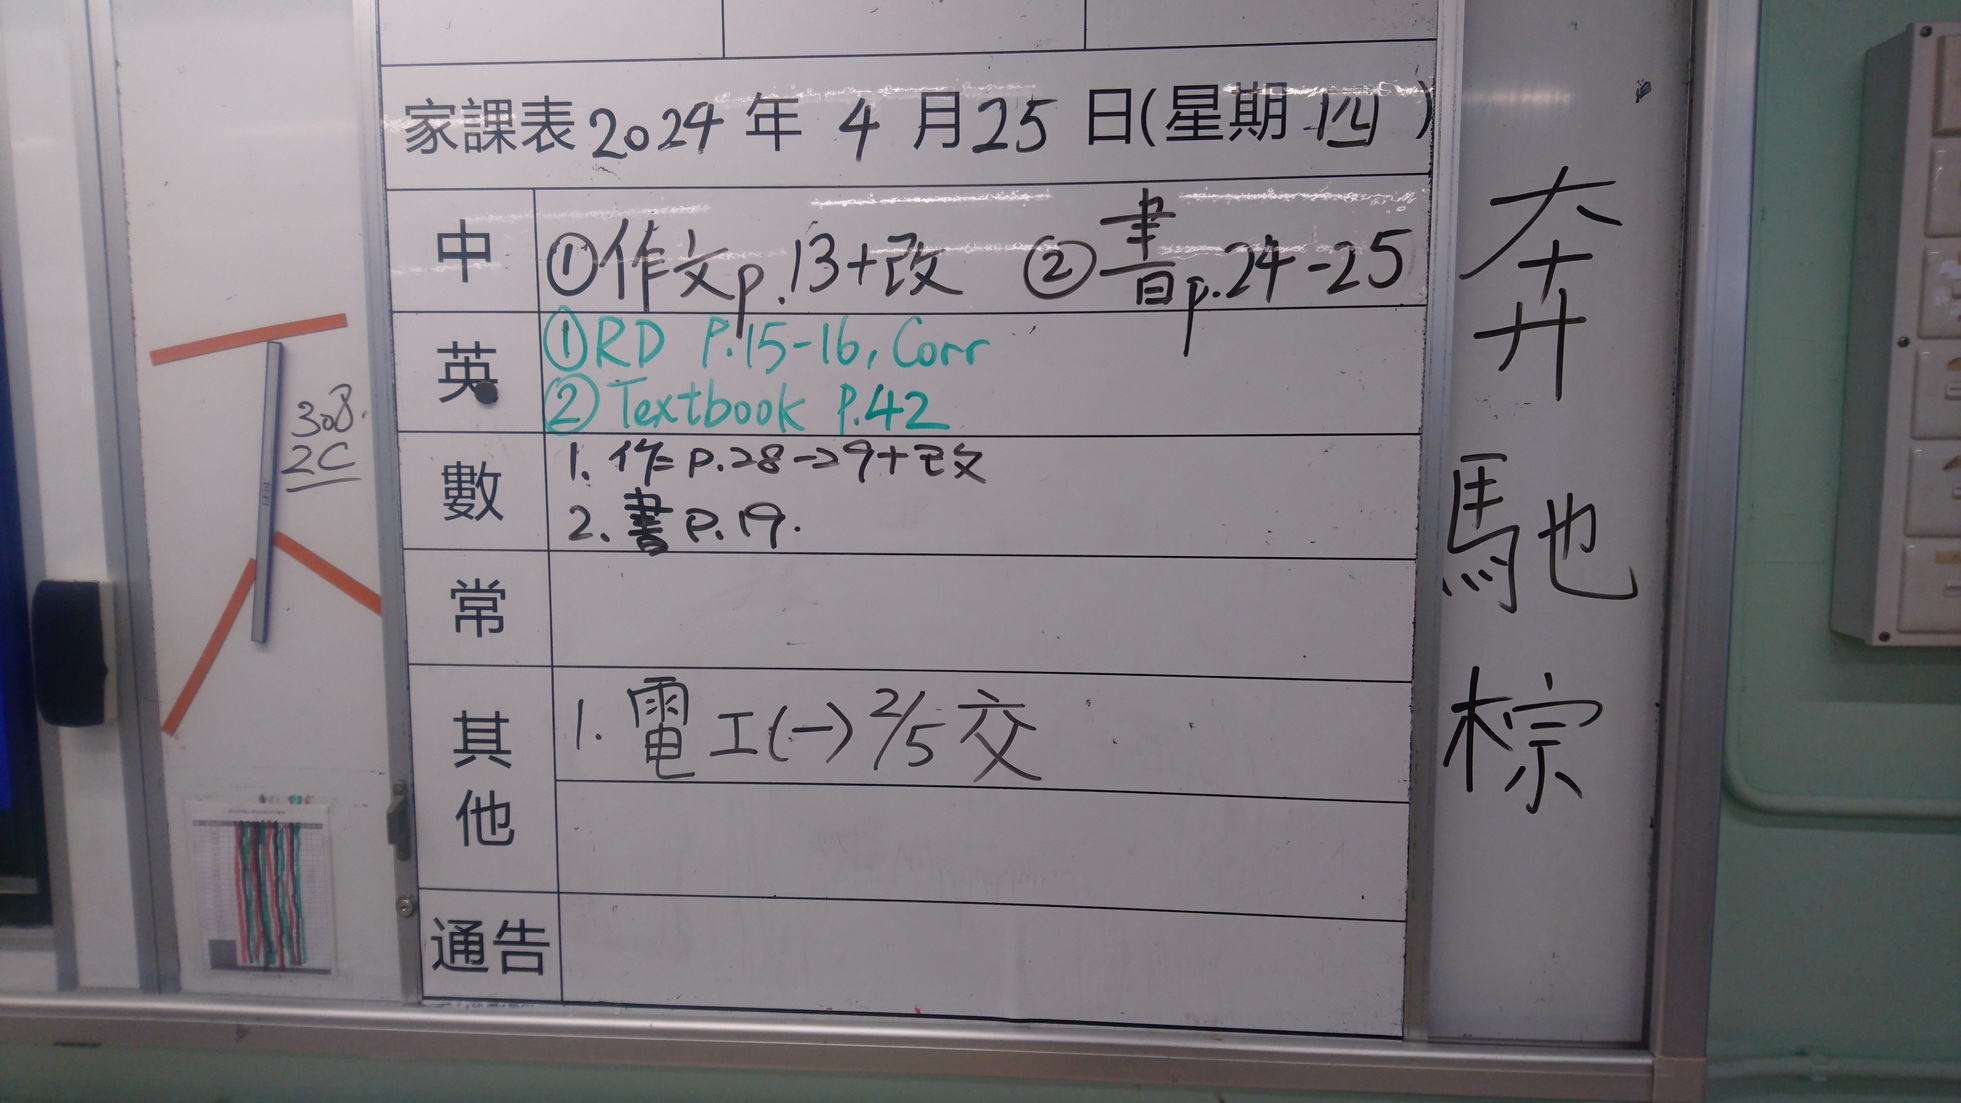 家課表2024年 4月25日(星期四)
中 ①作文p.13+改 ②書p.24-25
英 ①RD P.15-16, Corr
②Textbook P.42
數 1. 作 P.28→29+改
2. 書 P.19.
常
其他 1. 電工(一) 2/5 交
通告
308.
2C
奔
馳
棕